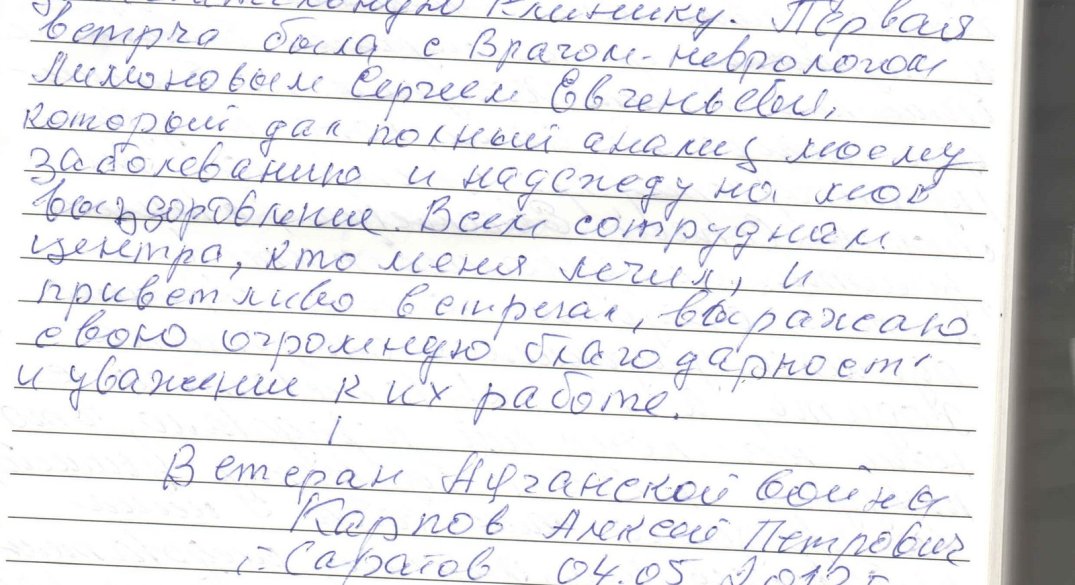 клинику. Первая
встреча была с Врачом-неврологом
Лимоновым Сергеем Евгеньевым,
который дал полный анализ моему
заболеванию и надежду на мое
выздоровление. Всем сотруднам
центра, кто меня лечил, и
приветливо встречал, выражаю
свою огромную благодарность
и уважение к их работе.
Ветеран Афганской войны
Карпов Алексей Петрович
г. Саратов 04.05